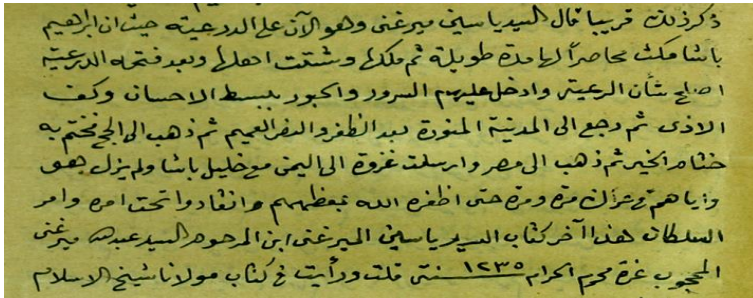 ذكر ذلك قريبا قال السيد ياسين ميرغنى وهو الآن على الدرعيه حيث ان ابراهيم
باشا مكث محاصراً لها مدة طويلة ثم ملكها وشتت اهلها وبعد فتحه الدرعيه
اصلح شأن الرعيه وادخل عليهم السرور والحبور ببسط الاحسان وكف
الاذى ثم رجع الى المدينة المنورة بعد الظفر والنصر العميم ثم ذهب الى الحج فختم به
ختام الخير ثم ذهب الى مصر وارسلت غزوة الى اليمن مع خليل باشا ولم يزل هو
واياهم فى عراك مرة ومرة حتى اظفره الله بمعظمهم وانقادوا تحت امره وامر
السلطان هذا آخر كتاب السيد ياسين الميرغنى ابن المرحوم السيد عبدالله ميرغنى
المحجوب غرة محرم الحرام سنة ١٢٣٥ قلت ورأيت فى كتاب مولانا شيخ الاسلام